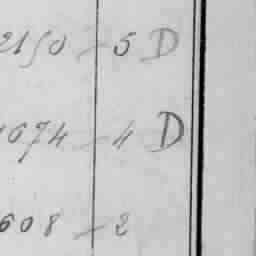 2150 - 5 D
1674 - 4 D
608 - 2